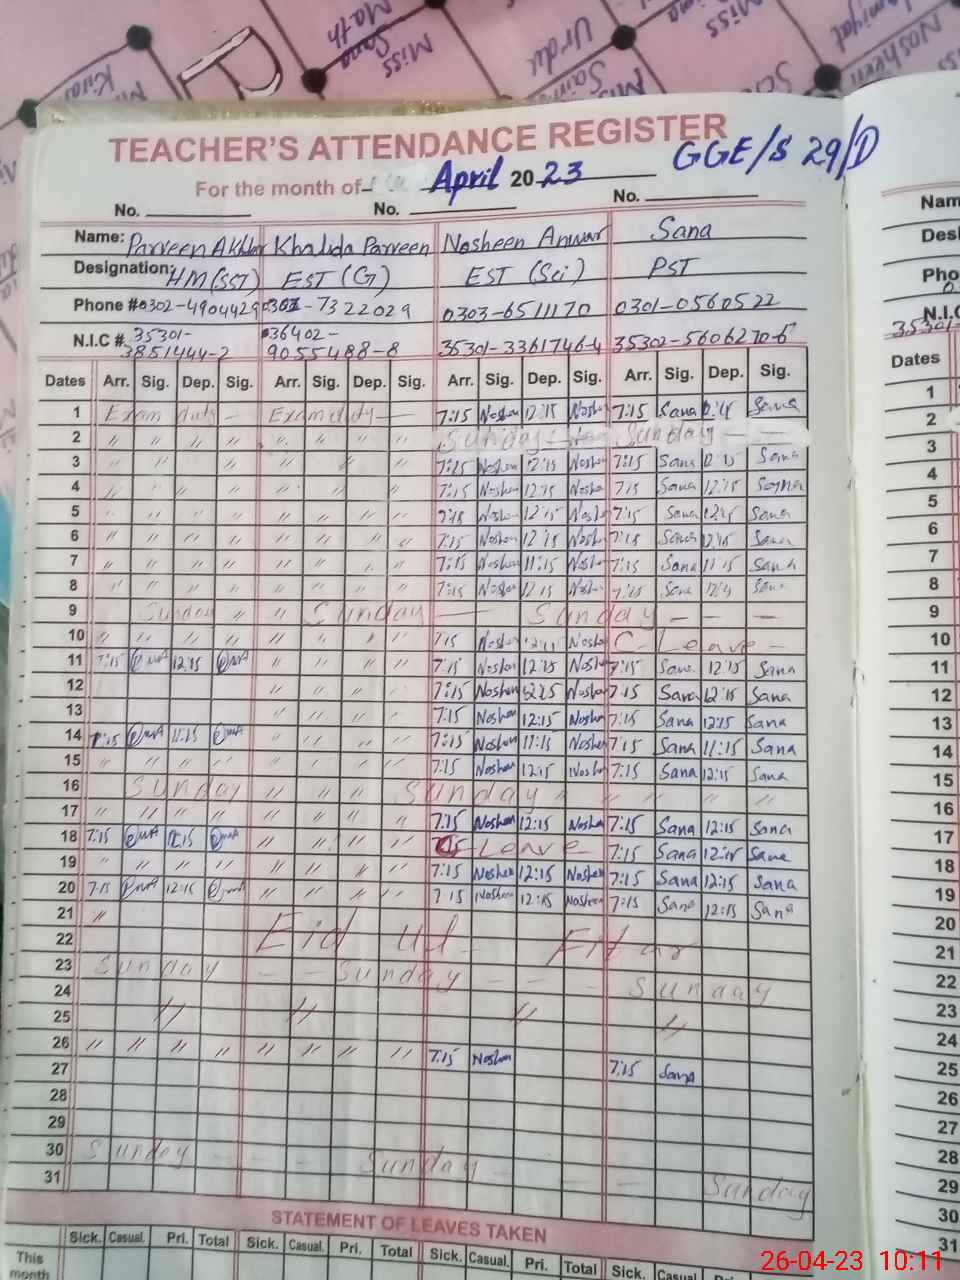 Miss
Sana
Math
Urdu
Miss
Nosheen
TEACHER'S ATTENDANCE REGISTER
For the month of April 2023 GGE/S 29/D
No. No. No.
Name: Parveen Akhtar Khalida Parveen Nosheen Anwar Sana
Designation: HM (SST) EST (G) EST (Sci) PST
Phone # 0302-4904429 7322029 0303-6511170 0301-0560522
N.I.C # 35301-3851444-2 36402-9055488-8 35301-3361746-4 35302-5606270-6
Dates Arr. Sig. Dep. Sig. Arr. Sig. Dep. Sig. Arr. Sig. Dep. Sig. Arr. Sig. Dep. Sig.
1 Exam duty — Exam duty — 7:15 Noshen 12:15 Noshen 7:15 Sana Sana
2 " " " " " " " " Sunday — Sunday — —
3 " " " " " " " " 7:15 Noshen 12:15 Noshen 7:15 Sana 12:15 Sana
4 " " " " " " " " 7:15 Noshen 12:15 Noshen 7:15 Sana 12:15 Sana
5 " " " " " " " " 7:15 Noshen 12:15 Noshen 7:15 Sana 12:15 Sana
6 " " " " " " " " 7:15 Noshen 12:15 Noshen 7:15 Sana 12:15 Sana
7 " " " " " " " " 7:15 Noshen 11:15 Noshen 7:15 Sana 11:15 Sana
8 " " " " " " " " 7:15 Noshen 12:15 Noshen 7:15 Sana Sana
9 Sunday " " Sunday — Sunday — — —
10 " " " " " " " " 7:15 Noshen Noshen C-Leave -
11 7:15 12:15 " " " " 7:15 Noshen 12:15 Noshen 7:15 Sana 12:15 Sana
12 " " " " 7:15 Noshen 12:15 Noshen 7:15 Sana 12:15 Sana
13 " " " " 7:15 Noshen 12:15 Noshen 7:15 Sana 12:15 Sana
14 7:15 11:15 " " " " 7:15 Noshen 11:15 Noshen 7:15 Sana 11:15 Sana
15 " " " " " " " " 7:15 Noshen 12:15 Noshen 7:15 Sana 12:15 Sana
16 Sunday Sunday " " " " "
17 " " " " " " " " 7:15 Noshen 12:15 Noshen 7:15 Sana 12:15 Sana
18 7:15 12:15 " " " " Leave 7:15 Sana 12:15 Sana
19 " " " " " " " " 7:15 Noshen 12:15 Noshen 7:15 Sana 12:15 Sana
20 7:15 12:15 " " " " 7:15 Noshen 12:15 Noshen 7:15 Sana 12:15 Sana
21 "
22 Eid ul- Fitar
23 Sunday — — Sunday — — — Sunday
24
25 " " " "
26 " " " " " " " " 7:15 Noshen 7:15 Sana
27
28
29
30 Sunday — — — Sunday — — — Sunday
31
STATEMENT OF LEAVES TAKEN
Sick. Casual. Pri. Total Sick. Casual. Pri. Total Sick. Casual. Pri. Total Sick. Casual
This month
Pho
N.I.C
Dates
1
2
3
4
5
6
7
8
9
10
11
12
13
14
15
16
17
18
19
20
21
22
23
24
25
26
27
28
29
30
31
26-04-23 10:11